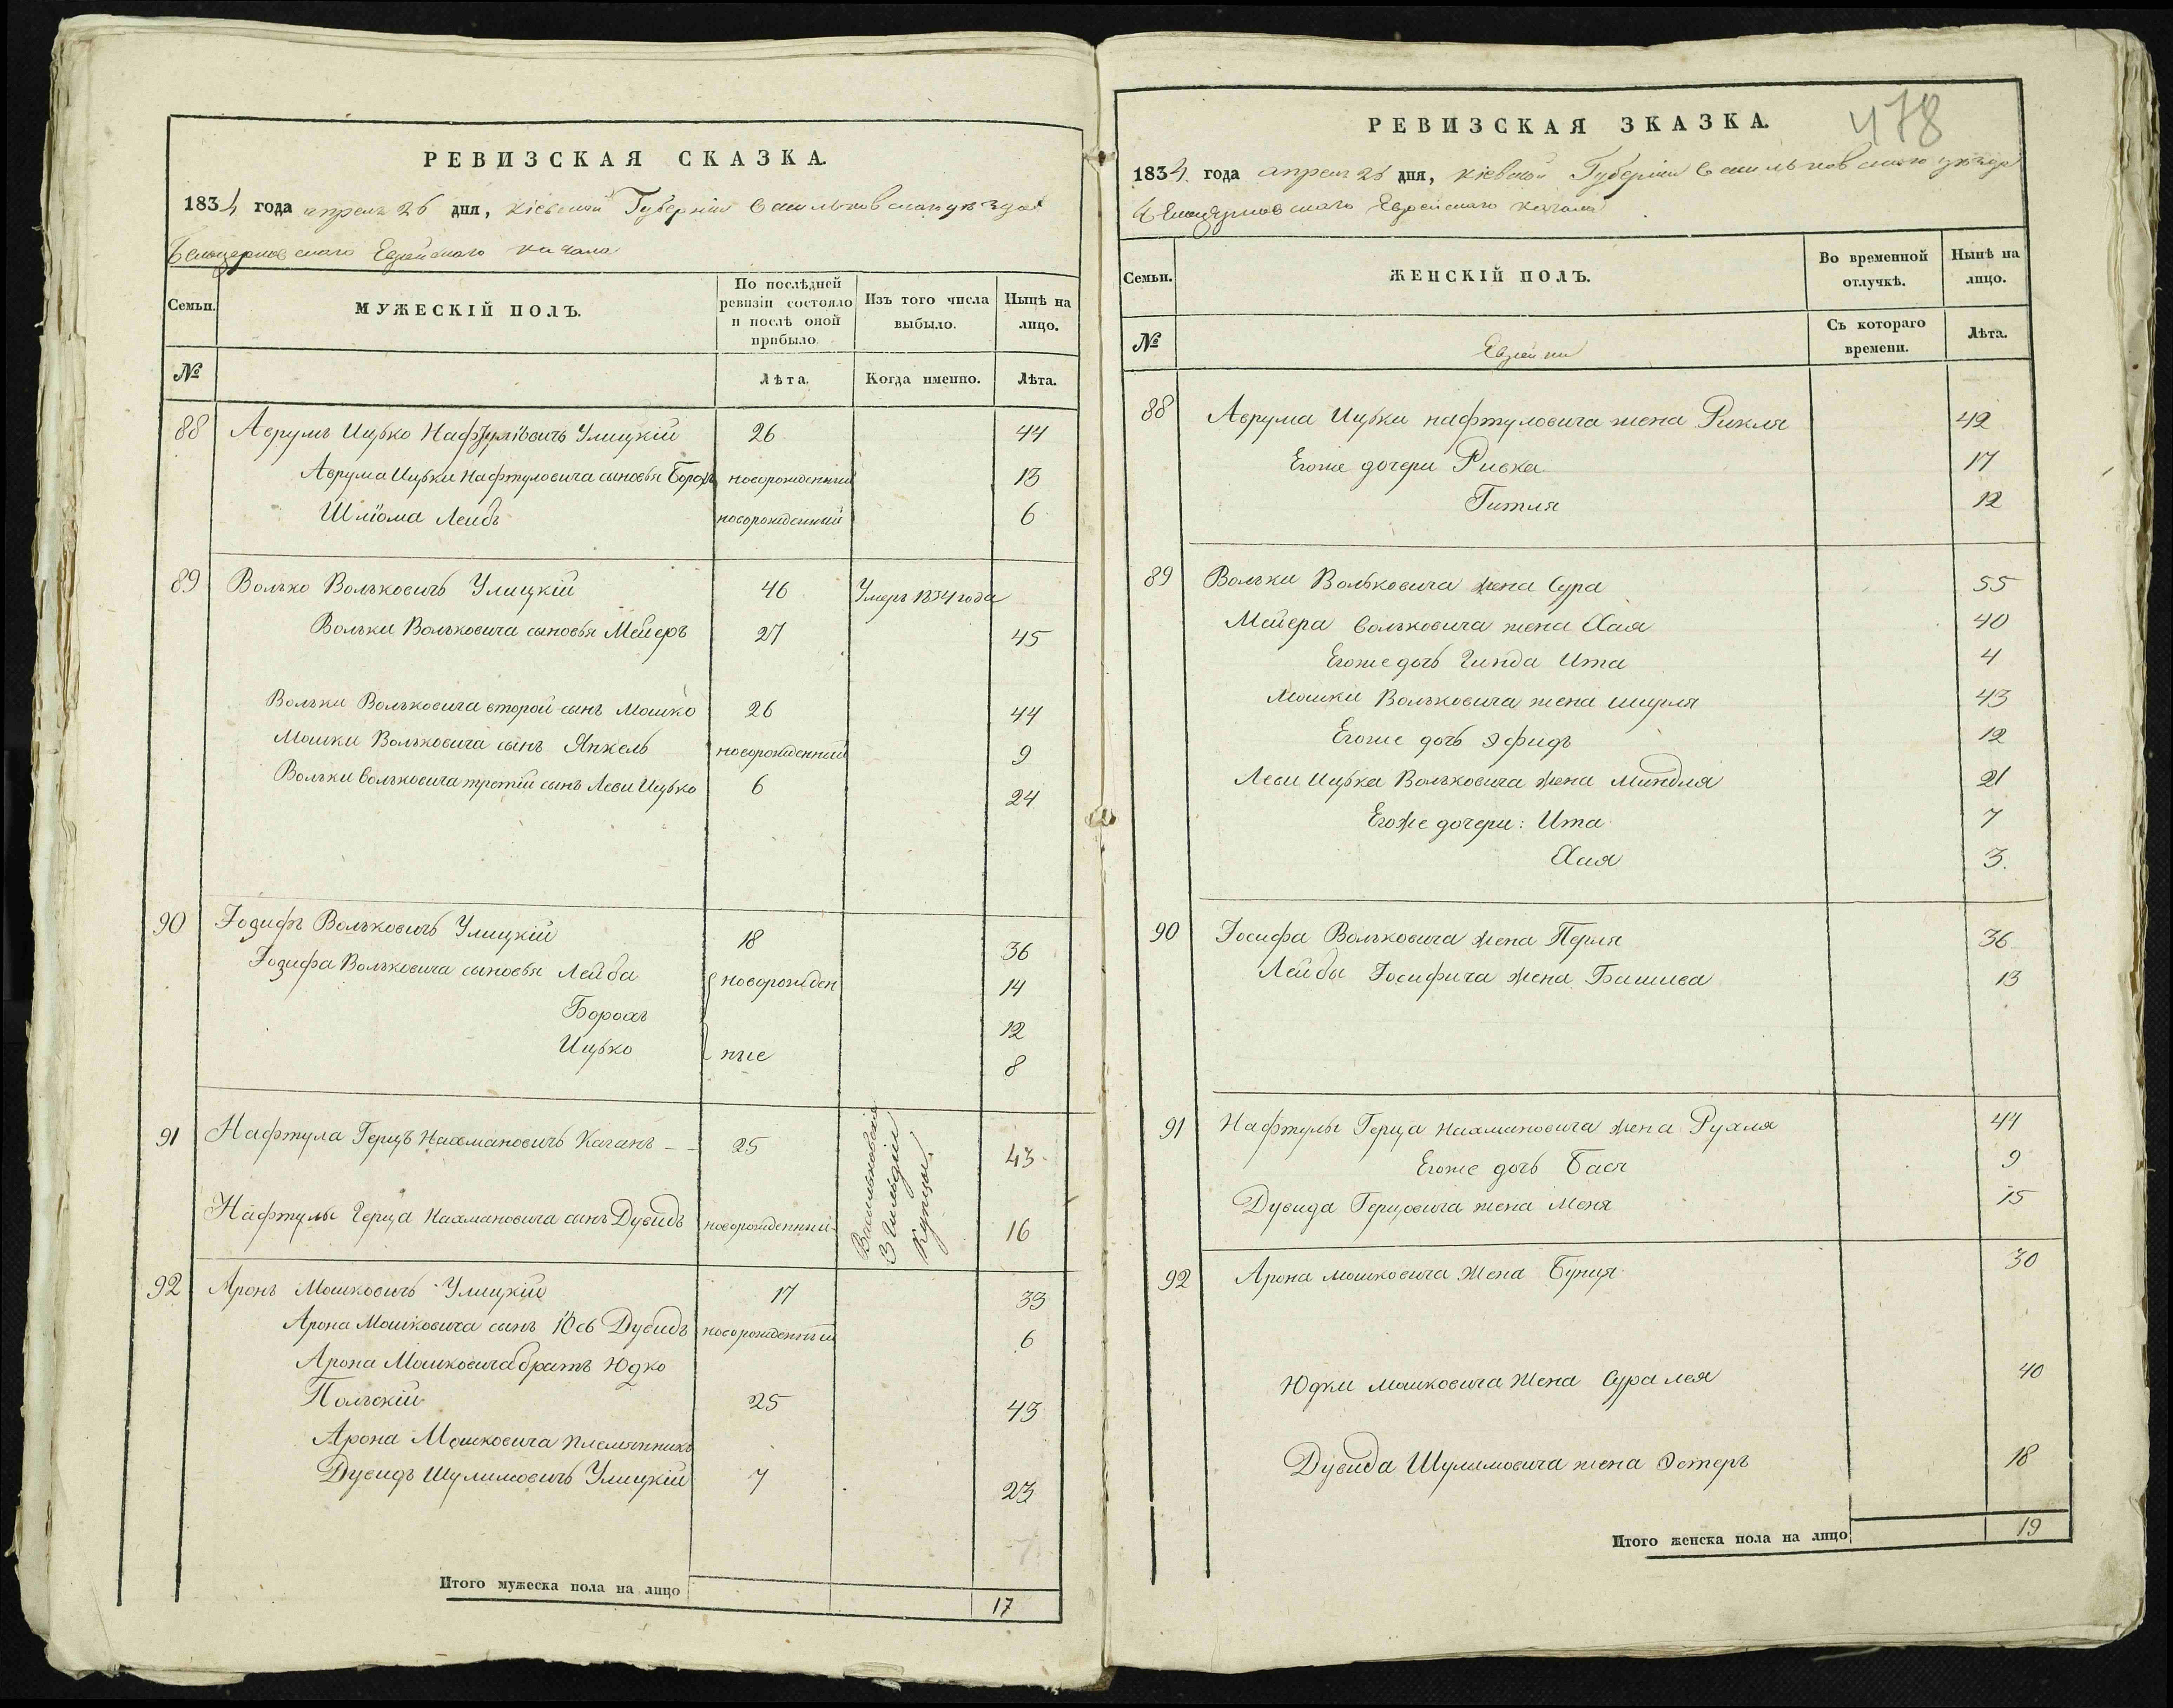 РЕВИЗСКАЯ СКАЗКА.
1834 года апреля 26 дня, Кіевской Губерніи Васильковского уезда
Белоцерковского Еврейского Кагала
Семьи.
МУЖЕСКІЙ ПОЛЪ.
По послѣдней ревизіи состояло и послѣ оной прибыло
Изъ того числа выбыло.
Нынѣ на лицо.
№
Лѣта.
Когда именно.
Лѣта.
88 Аврумъ Ицько Нафтуліовичъ Улицкій 26 44
Аврума Ицьки Нафтуловича сыновья Борохъ новорожденный 13
Шліома Леибъ новорожденный 6
89 Волько Вольковичъ Улицкій 46 Умеръ 1834 года
Вольки Вольковича сыновья Мейеръ 27 45
Вольки Вольковича второй сынъ Мошко 26 44
Мошки Вольковича сынъ Янкель новорожденный 9
Вольки Вольковича третій сынъ Леви Ицько 6 24
90 Іозифъ Вольковичъ Улицкій 18 36
Іозифа Вольковича сыновья Лейба новорожден 14
Борохъ 12
Ицько ные 8
91 Нафтула Герцъ Нахмановичъ Каганъ 25 43
Нафтулы Герца Нахмановича сынъ Дувидъ новорожденный 16
Васильковскіе
3 Гильдіи
Купцы.
92 Аронъ Мошковичъ Улицкій 17 33
Арона Мошковича сынъ Юсь Дувидъ новорожденный 6
Арона Мошковича братъ Юдко
Польскій 25 43
Арона Мошковича племянникъ
Дувидъ Шулимовичъ Улицкій 7 23
Итого мужеска пола на лицо 17
478
РЕВИЗСКАЯ ЗКАЗКА.
1834 года апреля 26 дня, Кіевской Губерніи Васильковского уезда
Белоцерковского Еврейского Кагала
Семьи.
ЖЕНСКІЙ ПОЛЪ.
Во временной отлучкѣ.
Нынѣ на лицо.
№
Еврейки
Съ котораго времени.
Лѣта.
88 Аврума Ицьки Нафтуловича жена Рикля 42
Егоже дочери Ривка 17
Гитля 12
89 Вольки Вольковича жена Сура 55
Мейера Вольковича жена Хая 40
Егоже дочь Гинда Ита 4
Мошки Вольковича жена Шифля 43
Егоже дочь Эфидъ 12
Леви Ицька Вольковича жена Миндля 21
Егоже дочери: Ита 7
Хая 3.
90 Іосифа Вольковича жена Перля 36
Лейбы Іосифича жена Башива 13
91 Нафтулы Герца Нахмановича жена Рухля 44
Егоже дочь Бася 9
Дувида Герцовича жена Меня 15
92 Арона Мошковича жена Буния 30
Юдки Мошковича жена Сура лея 40
Дувида Шулимовича жена Эстеръ 18
Итого женска пола на лицо 19